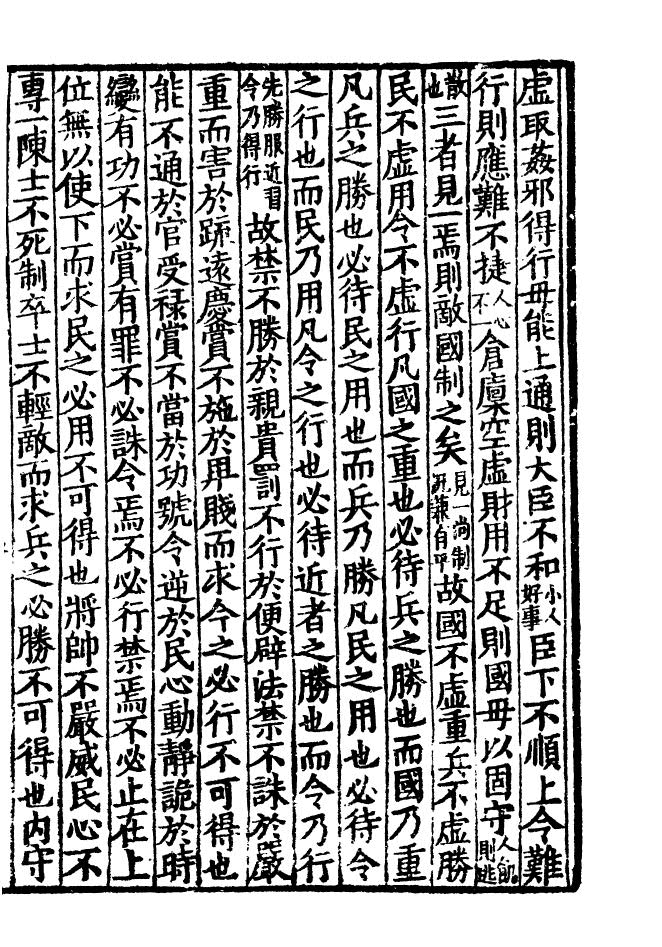 虛取姦邪得行毋能上通則大臣不和小人好事臣下不順上令難
行則應難不捷人心不一倉廩空虛財用不足則國毋以固守人飢則逃
散也三者見一焉則敵國制之矣見一尚制況兼自乎故國不虛重兵不虛勝
民不虛用令不虛行凡國之重也必待兵之勝也而國乃重
凡兵之勝也必待民之用也而兵乃勝凡民之用也必待令
之行也而民乃用凡令之行也必待近者之勝也而令乃行
先勝服近習令乃得行故禁不勝於親貴罰不行於便辟法禁不誅於嚴
重而害於疏遠慶賞不施於卑賤而求令之必行不可得也
能不通於官受祿賞不當於功號令逆於民心動靜詭於時
變有功不必賞有罪不必誅令焉不必行禁焉不必止在上
位無以使下而求民之必用不可得也將帥不嚴威民心不
專一陳士不死制卒士不輕敵而求兵之必勝不可得也內守